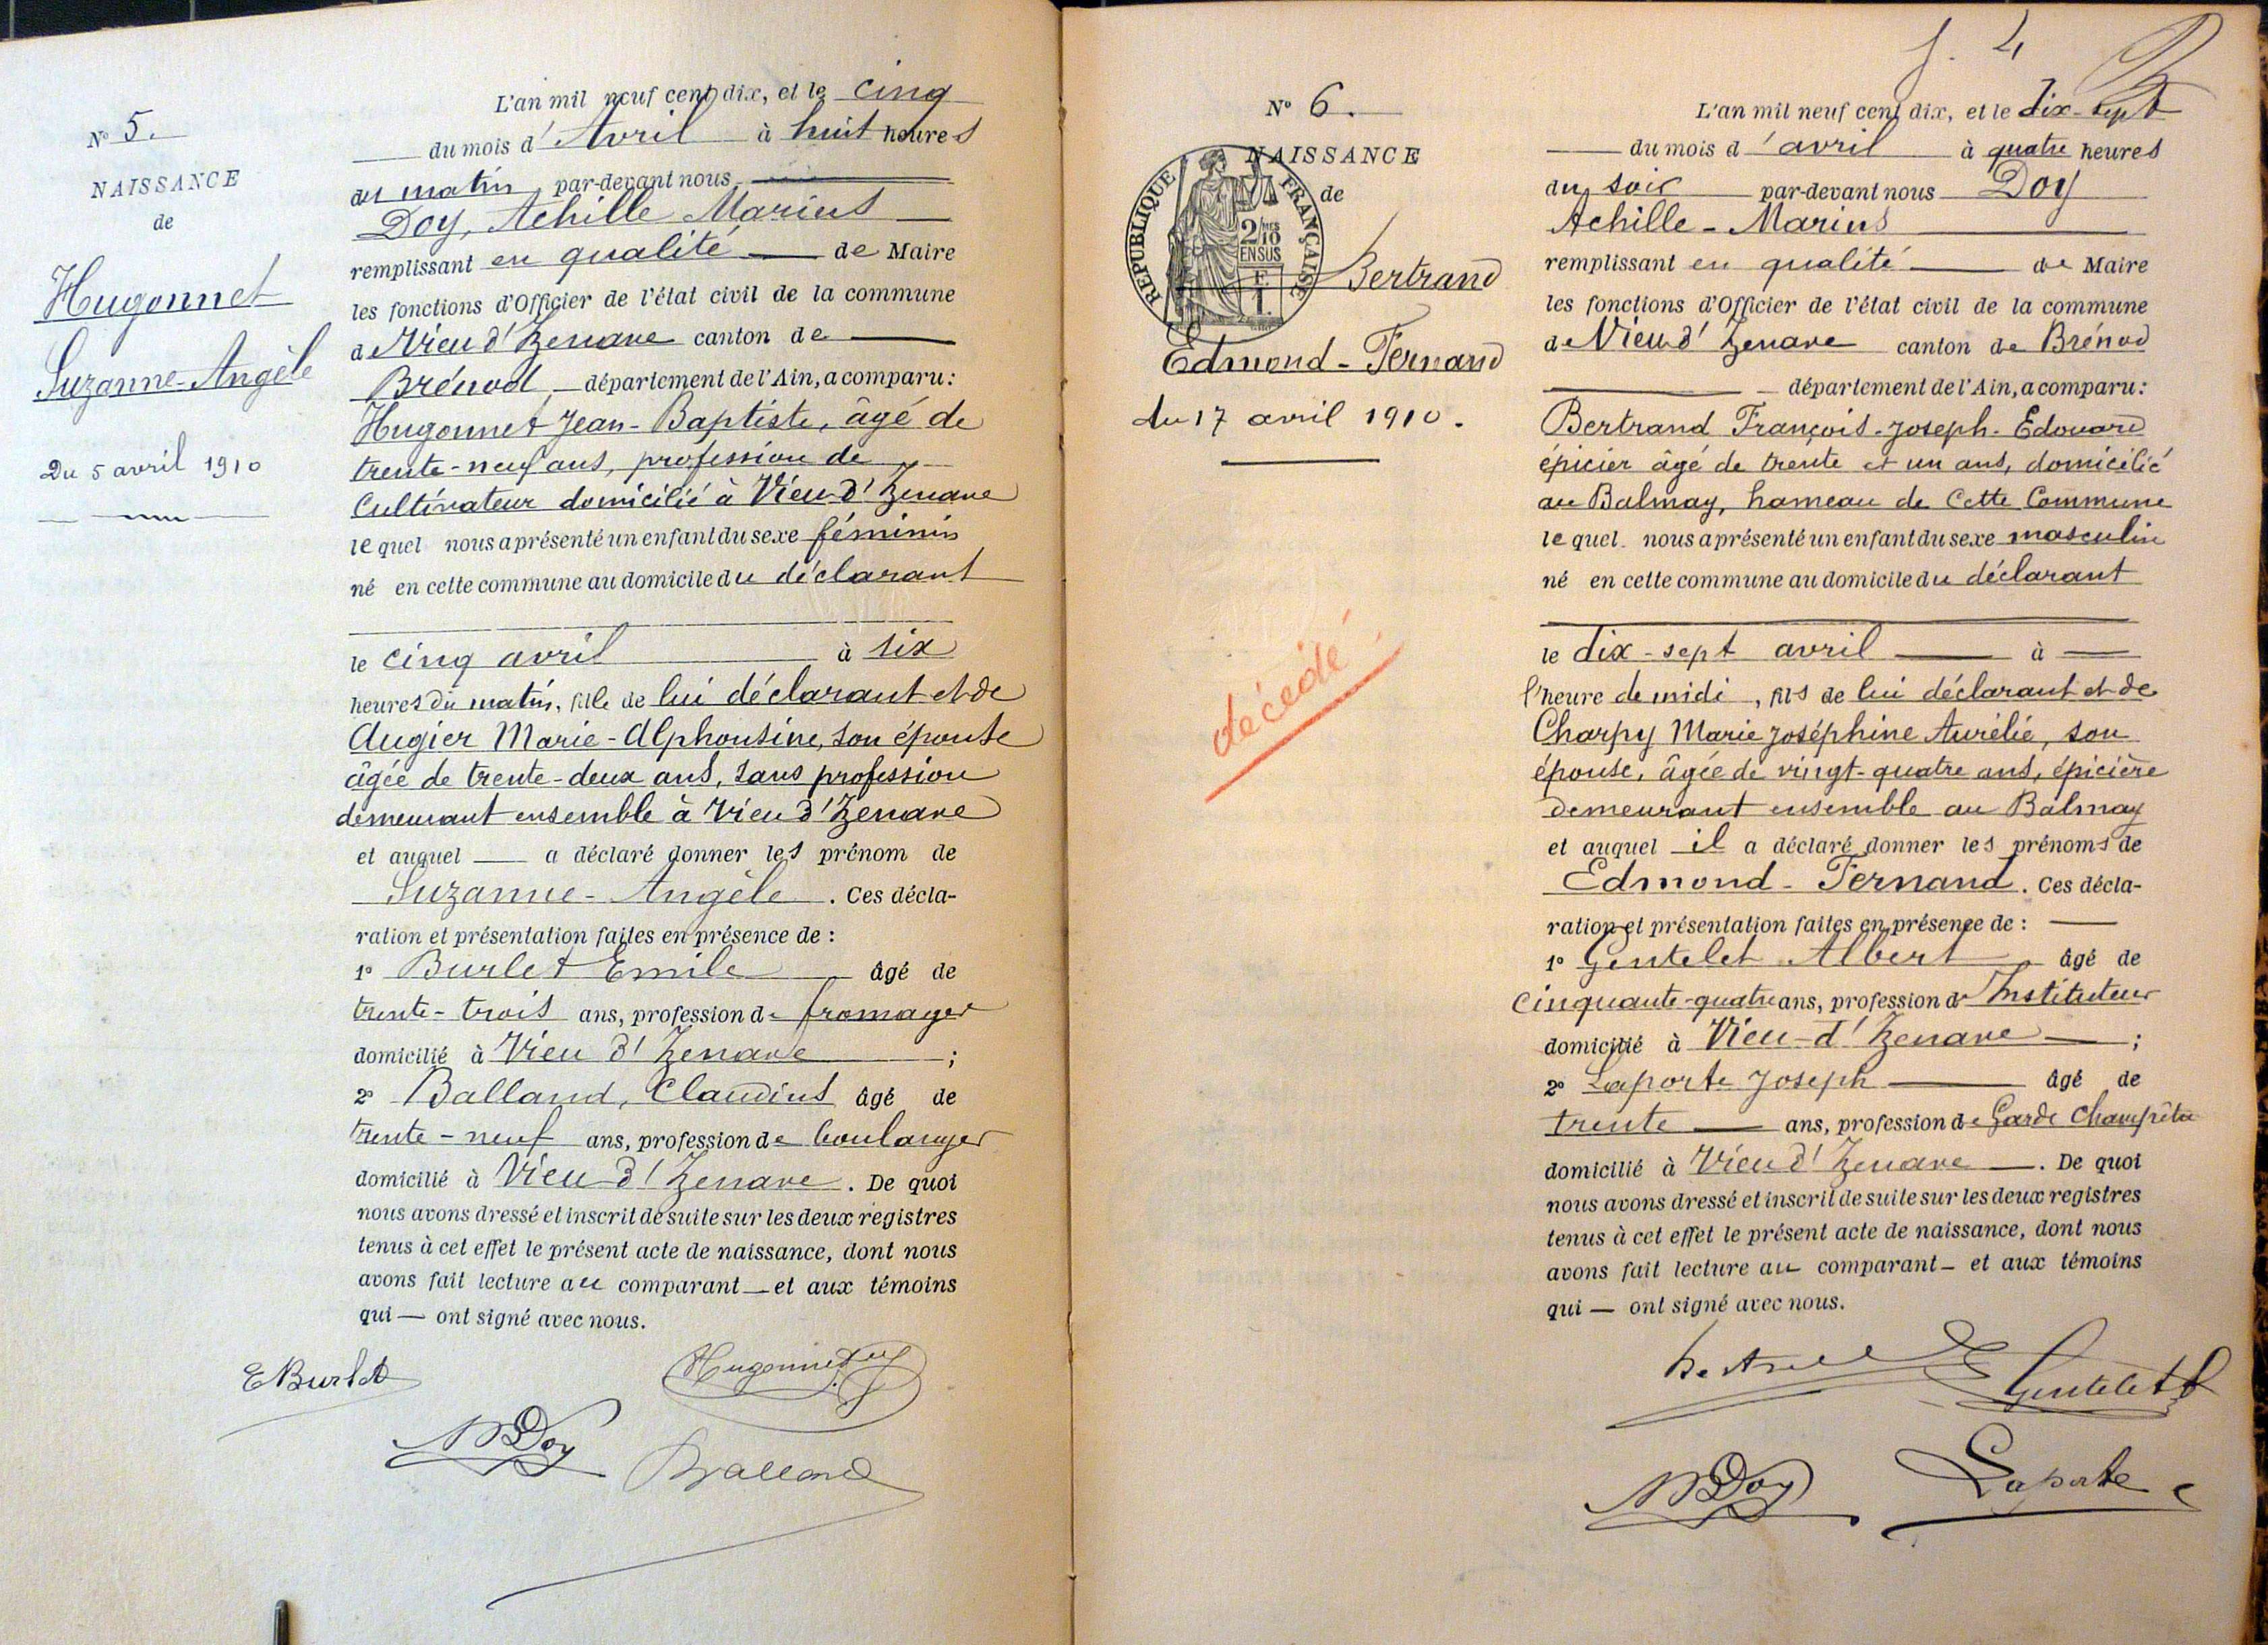 N° 5.
NAISSANCE
de
Hugonnet
Suzanne-Angèle
Du 5 avril 1910
L'an mil neuf cent dix, et le cinq
du mois d'Avril à huit heures
du matin, par-devant nous
Doy, Achille Marius
remplissant en qualité de Maire
les fonctions d'Officier de l'état civil de la commune
de Vieu d'Izenave canton de
Brénod, département de l'Ain, a comparu :
Hugonnet Jean-Baptiste, âgé de
trente-neuf ans, profession de
Cultivateur domicilié à Vieu d'Izenave
lequel nous a présenté un enfant du sexe féminin
né en cette commune au domicile du déclarant
le cinq avril à six
heures du matin, fille de lui déclarant et de
Augier Marie-Alphonsine, son épouse
âgée de trente-deux ans, sans profession
demeurant ensemble à Vieu d'Izenave
et auquel a déclaré donner les prénom de
Suzanne-Angèle. Ces décla-
ration et présentation faites en présence de :
1° Burlet Emile âgé de
trente-trois ans, profession de fromager
domicilié à Vieu d'Izenave ;
2° Balland, Claudius âgé de
trente-neuf ans, profession de boulanger
domicilié à Vieu d'Izenave. De quoi
nous avons dressé et inscrit de suite sur les deux registres
tenus à cet effet le présent acte de naissance, dont nous
avons fait lecture au comparant et aux témoins
qui ont signé avec nous.
E Burlet
Hugonnet
Doy
Balland
f. 4
N° 6.
NAISSANCE
de
REPUBLIQUE FRANÇAISE
2/10 mes
EN SUS
Bertrand
Edmond-Fernand
du 17 avril 1910.
décédé
L'an mil neuf cent dix, et le dix-sept
du mois d'avril à quatre heures
du soir par-devant nous Doy
Achille-Marius
remplissant en qualité de Maire
les fonctions d'Officier de l'état civil de la commune
de Vieu d'Izenave canton de Brénod
département de l'Ain, a comparu :
Bertrand François-Joseph-Edouard
épicier âgé de trente et un ans, domicilié
au Balmay, hameau de cette Commune
lequel nous a présenté un enfant du sexe masculin
né en cette commune au domicile du déclarant
le dix-sept avril à
l'heure de midi, fils de lui déclarant et de
Charpy Marie Joséphine Aurélie, son
épouse, âgée de vingt-quatre ans, épicière
demeurant ensemble au Balmay
et auquel il a déclaré donner les prénoms de
Edmond-Fernand. Ces décla-
ration et présentation faites en présence de :
1° Gentelet Albert âgé de
cinquante-quatre ans, profession d'Instituteur
domicilié à Vieu-d'Izenave ;
2° Laporte Joseph âgé de
trente ans, profession de Garde Champêtre
domicilié à Vieu d'Izenave. De quoi
nous avons dressé et inscrit de suite sur les deux registres
tenus à cet effet le présent acte de naissance, dont nous
avons fait lecture au comparant et aux témoins
qui ont signé avec nous.
Gentelet
Doy
Laporte